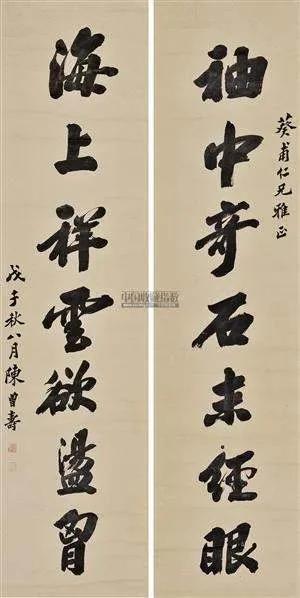 葵甫仁兄雅正
袖中奇石未經眼
海上祥雲欲盪胷
戊子秋八月陳曾壽